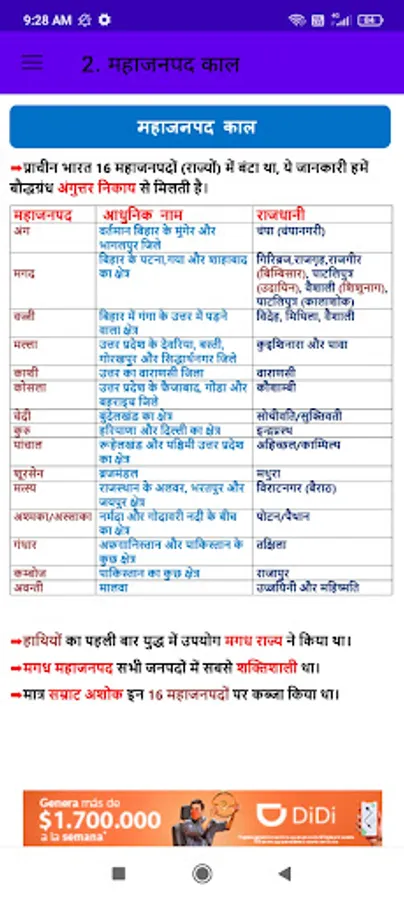 9:28 AM
2. महाजनपद काल
महाजनपद काल
➡प्राचीन भारत 16 महाजनपदों (राज्यों) में बंटा था, ये जानकारी हमें
बौद्धग्रंथ अंगुत्तर निकाय से मिलती है।
महाजनपद आधुनिक नाम राजधानी
अंग वर्तमान बिहार के मुंगेर और चंपा (चंपानगरी)
भागलपुर जिले
बिहार के पटना,गया और शाहाबाद गिरिब्रज,राजगृह,राजगीर
मगध का क्षेत्र (बिम्बिसार), पाटलिपुत्र
(उदायिन), वैशाली (शिशुनाग),
पाटलिपुत्र (कालाशोक)
वज्जी बिहार में गंगा के उत्तर में पड़ने विदेह, मिथिला, वैशाली
वाला क्षेत्र
मल्ला उत्तर प्रदेश के देवरिया, बस्ती, कुशिनारा और पावा
गोरखपुर और सिद्धार्थनगर जिले
काशी उत्तर का वाराणसी जिला वाराणसी
कोसला उत्तर प्रदेश के फैजाबाद, गोंडा और कौशाम्बी
बहराइच जिले
चेदी बुंदेलखंड का क्षेत्र सोथीवति/सुक्तिवती
कुरु हरियाणा और दिल्ली का क्षेत्र इन्द्रप्रस्थ
पांचाल रूहेलखंड और पश्चिमी उत्तर प्रदेश अहिच्छल/काम्पिल्य
का क्षेत्र
शूरसेन ब्रजमंडल मथुरा
मत्स्य राजस्थान के अलवर, भरतपुर और विराटनगर (बैराठ)
जयपुर क्षेत्र
अश्मका/अस्ताका नर्मदा और गोदावरी नदी के बीच पोटन/पैथान
का क्षेत्र
गंधार अफ़ग़ानिस्तान और पाकिस्तान के तक्षिला
कुछ क्षेत्र
कम्बोज पाकिस्तान का कुछ क्षेत्र राजापुर
अवन्ती मालवा उज्जयिनी और महिष्मति
➡हाथियों का पहली बार युद्ध में उपयोग मगध राज्य ने किया था।
➡मगध महाजनपद सभी जनपदों में सबसे शक्तिशाली था।
➡मात्र सम्राट अशोक इन 16 महाजनपदों पर कब्जा किया था।
Genera más de
$1.700.000
a la semana*
DiDi